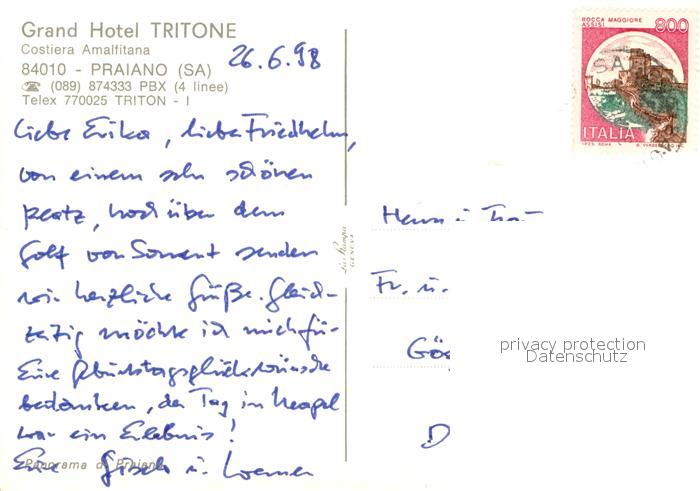 Grand Hotel TRITONE
Costiera Amalfitana
84010 - PRAIANO (SA)
☎ (089) 874333 PBX (4 linee)
Telex 770025 TRITON - I
26.6.98
Liebe Erika, lieber Friedhelm,
von einem sehr schönen
Platz, hoch über dem
Golf von Sorrent senden
wir herzliche Grüße. Gleich-
zeitig möchte ich mich für
Eure Geburtstagsglückwünsche
bedanken, der Tag in Neapel
war ein Erlebnis!
Eure Gisela u. Werner
Panorama di Praiano
La Stampa
GENOVA
ROCCA MAGGIORE
ASSISI
800
ITALIA
Herrn u. Frau
Fr. u.
Gös
D
privacy protection
Datenschutz